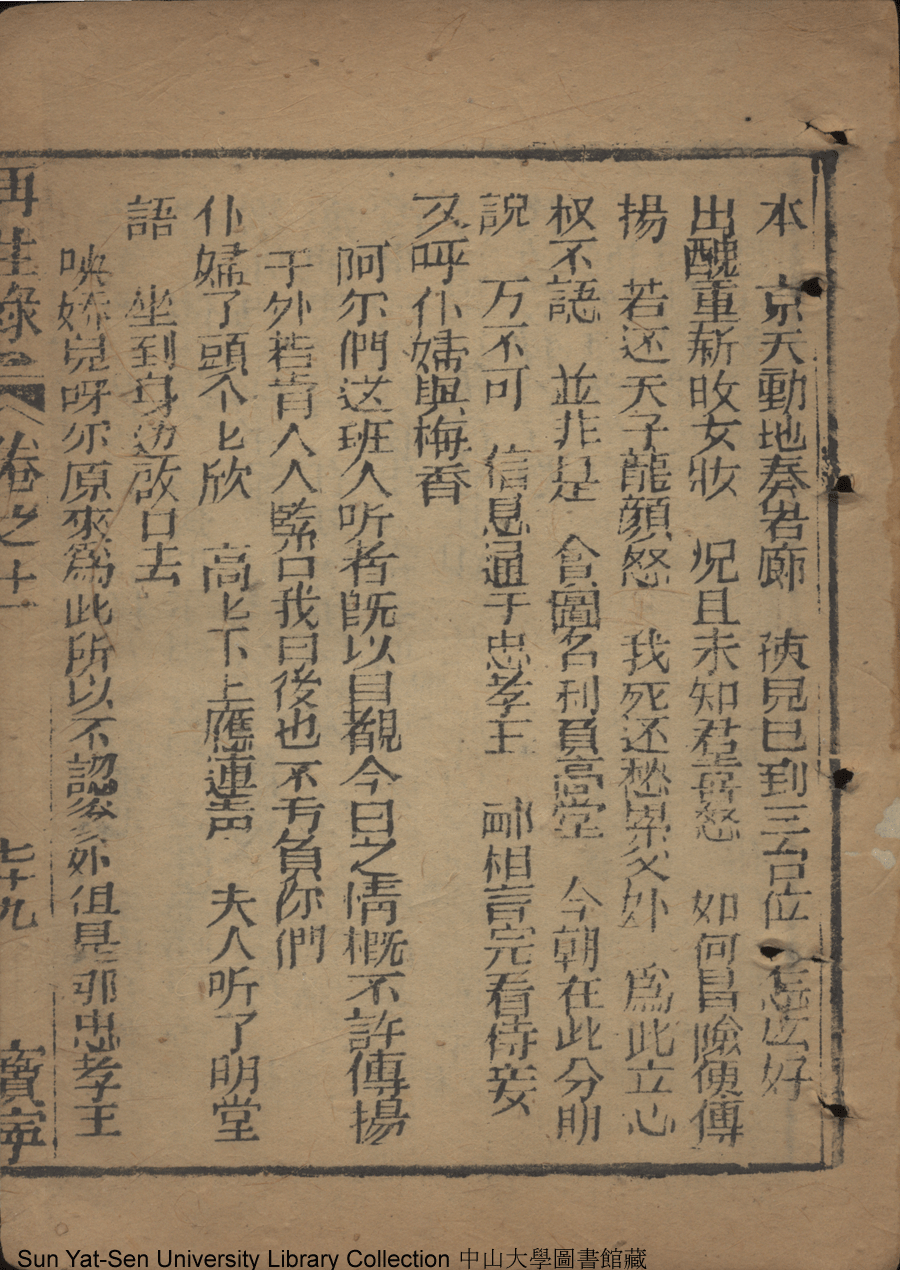 本　京天動地奏君廊　孩兒已到三台位　怎広好
出醜重新改女妝　况且未知君喜怒　如何昌險便傳
揚　若还天子龍顔怒　我死还愁累父外　為此立心
权不認　並非是　貪圖名利負高堂　今朝在此分明
說　万不可　信息通于忠孝王　酈相言完看侍妾
又呼仆婦與梅香
阿尔們这班人听者既以目覩今日之情概不許傳揚
于外若肯人人緊口我日後也不亏負你們
仆婦了頭个匕欣　高匕下上應連声　夫人听了明堂
語　坐到身边啟口去
咉姊兒呀尔原來為此所以不認爹外但是那忠孝王
再生緣 卷之十一 七十九 寳寧
Sun Yat-Sen University Library Collection 中山大學圖書館藏